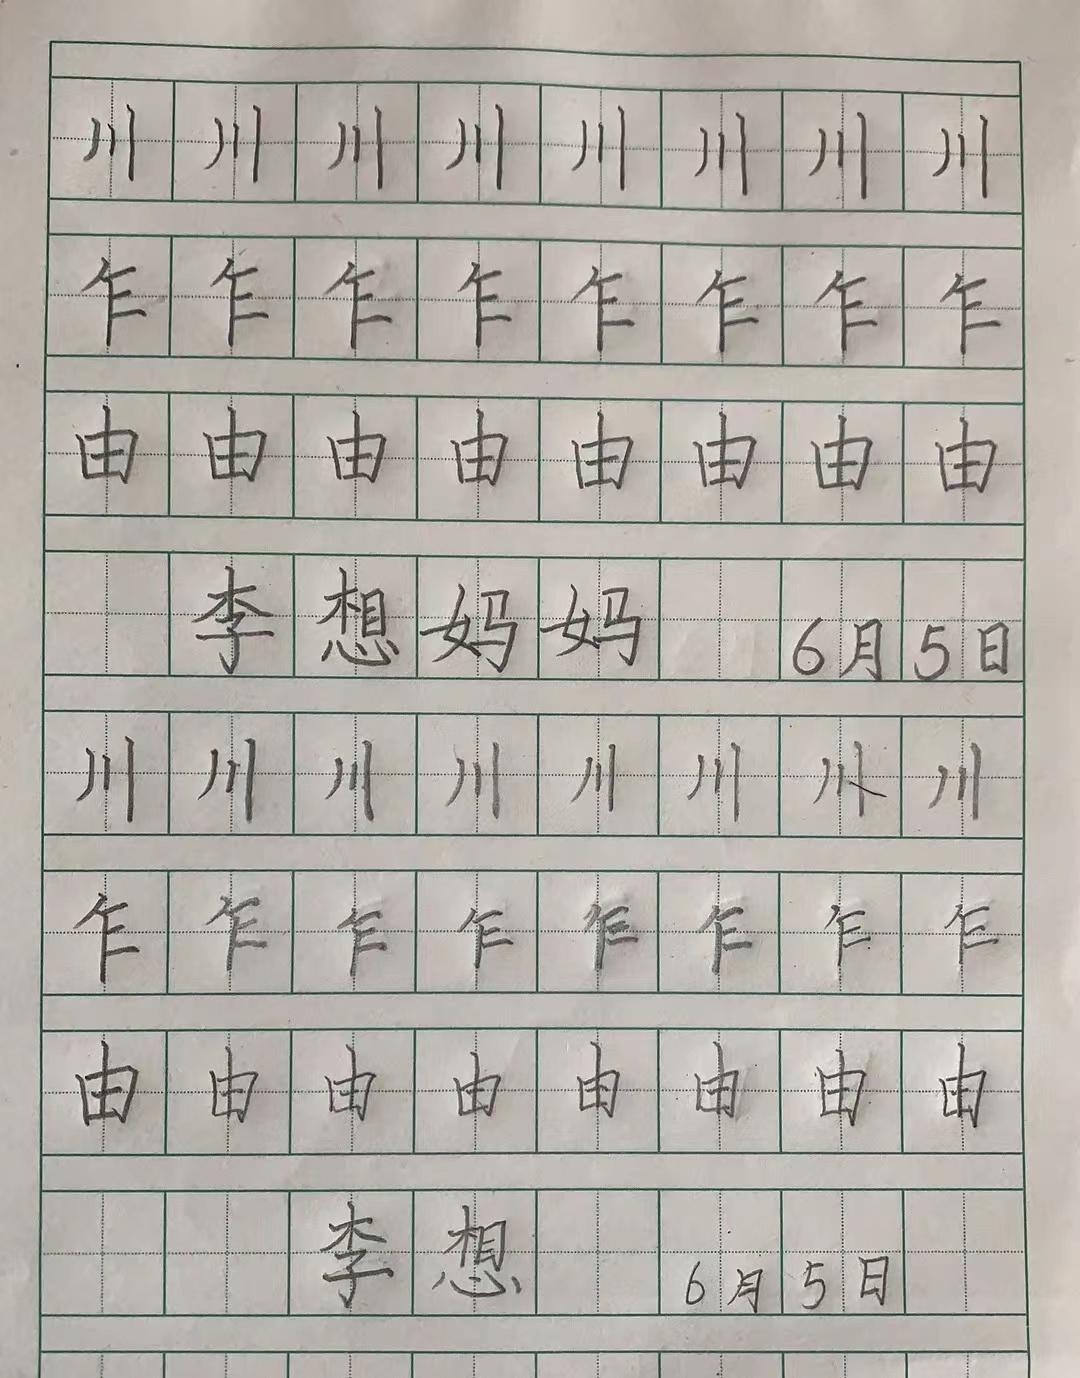 川川川川川川川川
乍乍乍乍乍乍乍乍
由由由由由由由由
李想妈妈 6月5日
川川川川川川川川
乍乍乍乍乍乍乍乍
由由由由由由由由
李想 6月5日